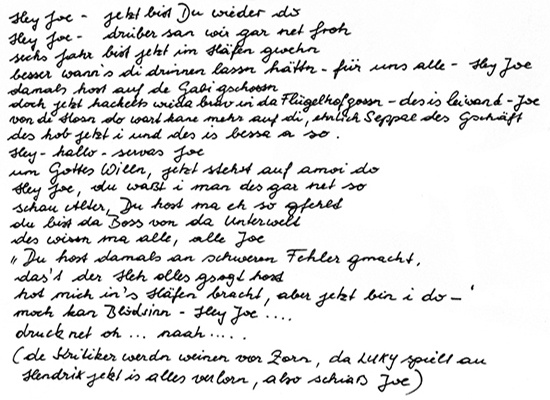 Hey Joe - jetzt bist Du wieder do
Hey Joe - drüber san wir gar net froh
sechs Jahr bist jetzt im Häfen gwehn
besser wann's di drinnen lassn hättn - für uns alle - Hey Joe
damals host auf de Gabi gschossn
doch jetzt hackelts wida brav in da Flügelhofgossn - des is leiwand - Joe
von de Hosn do wart kane mehr auf di, ehrlich Seppal des Gschäft
des hob jetzt i und des is bessa a so.
Hey - hallo - servas Joe
um Gottes Willn, jetzt stehst auf amoi do
Hey Joe, du waßt i man des gar net so
schau Alter, Du host ma eh so gfehlt
du bist da Boss von da Unterwelt
des wissn ma alle, alle Joe
"Du host damals an schweren Fehler gmacht,
das't der Heh olles gsogt host
host mich in's Häfen bracht, aber jetzt bin i do -'
moch kan Blödsinn - Hey Joe ....
druck net oh ... naah .....
(de Kritiker werdn weinen vor Zorn, da LUKY spielt an
Hendrik jetzt is alles verlorn, also schiaß Joe)